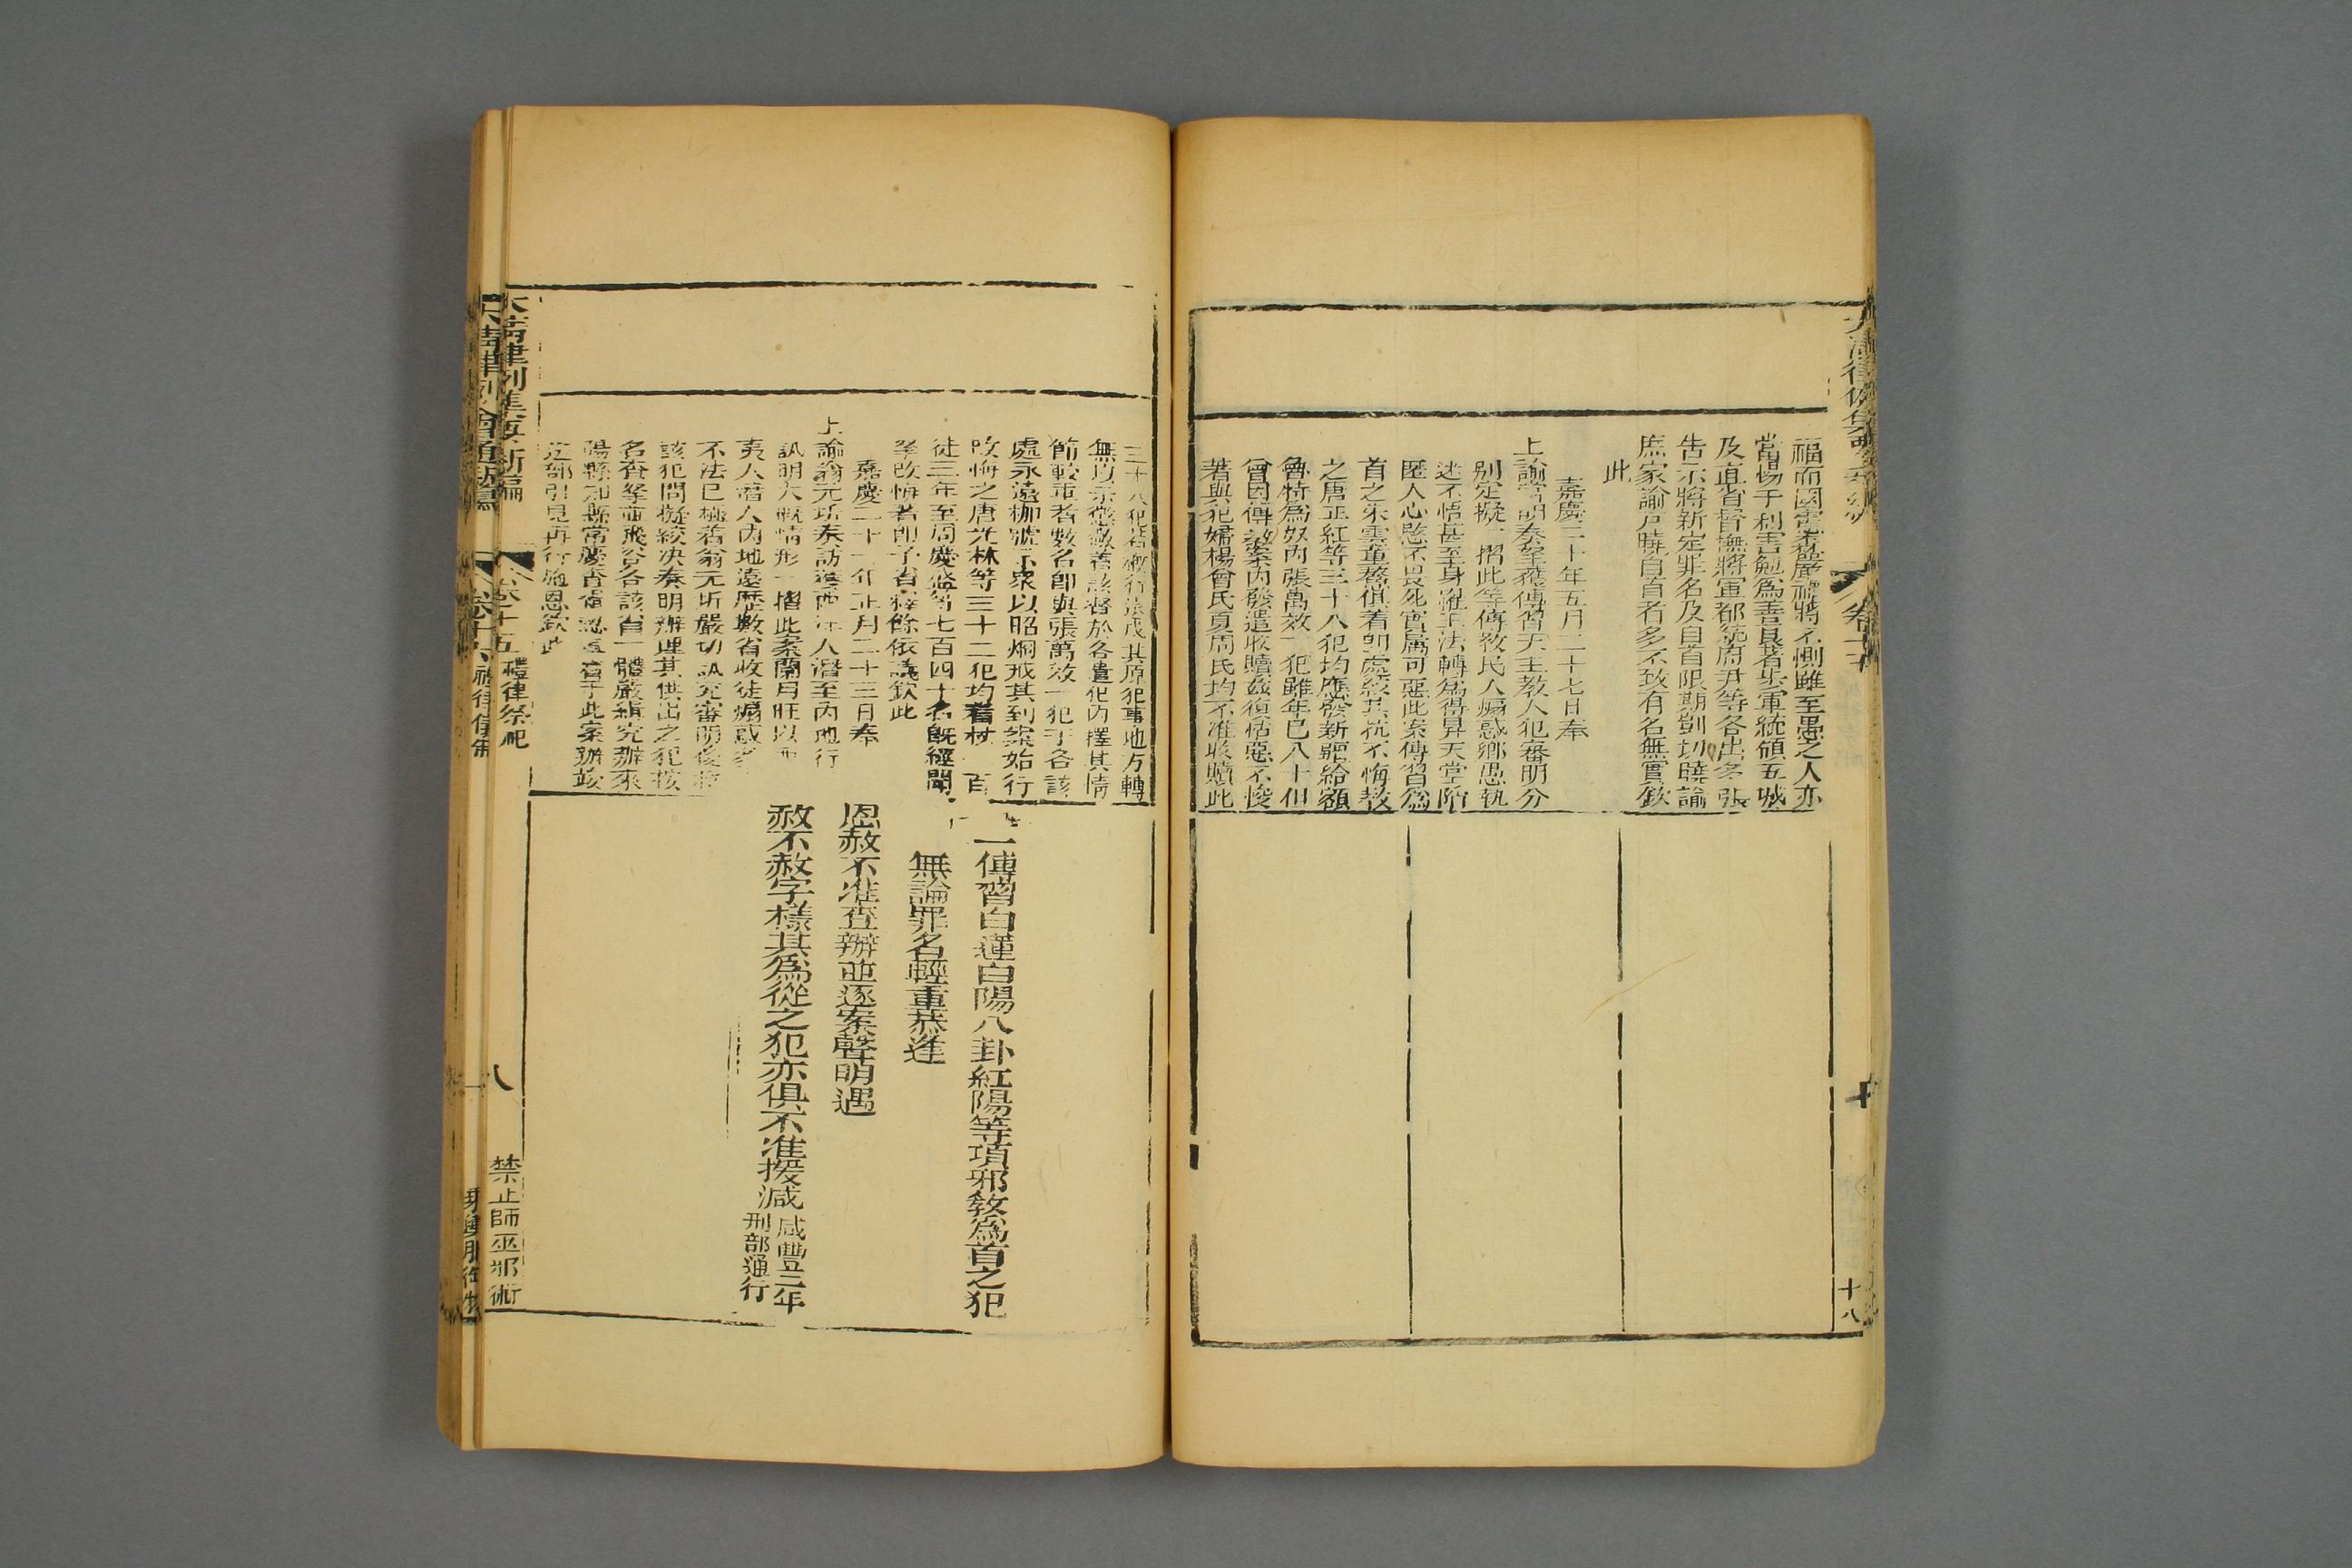 福而國憲森嚴禍將不惻雖至愚之人亦
當惕于利害勉爲善良著步軍統領五城
及直省督撫將軍都統府尹等各出多張
告示將新定罪名及自首限期剴切曉諭
庶家諭戶曉自首者多不致有名無實欽
此
嘉慶二十年五月二十七日奉
上諭常明奏拏獲傳習天主教人犯審明分
别定擬一摺此等傳教民人煽惑鄉愚執
迷不悟甚至身罹王法轉爲得昇天堂陷
匪人心愍不畏死實屬可惡此案傳習爲
首之朱雲童鰲俱着卽處絞其抗不悔教
之唐正紅等三十八犯均應發新疆給額
魯特爲奴內張萬效一犯雖年已八十但
曾因傳教案內發遣收贖茲復怙惡不悛
著與犯婦楊曾氏夏周氏均不准收贖此
十八
三十八犯若概行遠戍其原犯事地方轉
無以示儆著該督於各遣犯內擇其情
節較重者數名卽與張萬效一犯于各該
處永遠枷號示衆以昭烱戒其到案始行
改悔之唐光林等三十二犯均着杖一百
徒三年至周慶盛等七百四十名旣經聞
拏改悔者卽予省釋餘依議欽此
嘉慶二十一年正月二十三日奉
上諭翁元圻奏訪獲西洋人潛至內地行
訊明大概情形一摺此案蘭月旺以西
夷人潛入內地遠歷數省收徒煽惑
不法已極着翁元圻嚴切訊究審明後
該犯問擬絞决奏明辦理其供出之犯按
名查拏並飛咨各該省一體嚴緝究辦
陽縣知縣常慶
送部引見再行施恩欽此
一傳習白蓮白陽八卦紅陽等項邪敎爲首之犯
無論罪名輕重恭逢
恩赦不准查辦並逐案聲明遇
赦不赦字樣其爲從之犯亦俱不准援減
咸豐三年
刑部通行
大清律例
卷十五
禮律祭祀
八
禁止師巫邪術